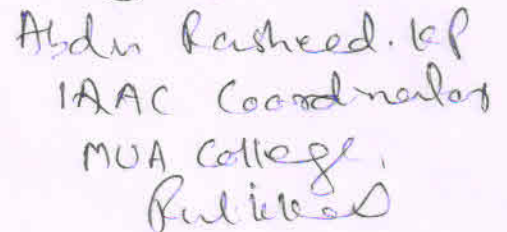 Abdu Rasheed. KP
IAAC Coordinator
MUA College,
Pulikkal